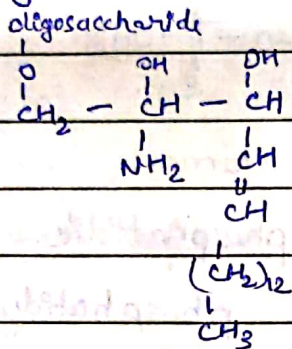 oligosaccharide
O OH OH
CH2 - CH - CH
NH2 CH
CH
(CH2)12
CH3